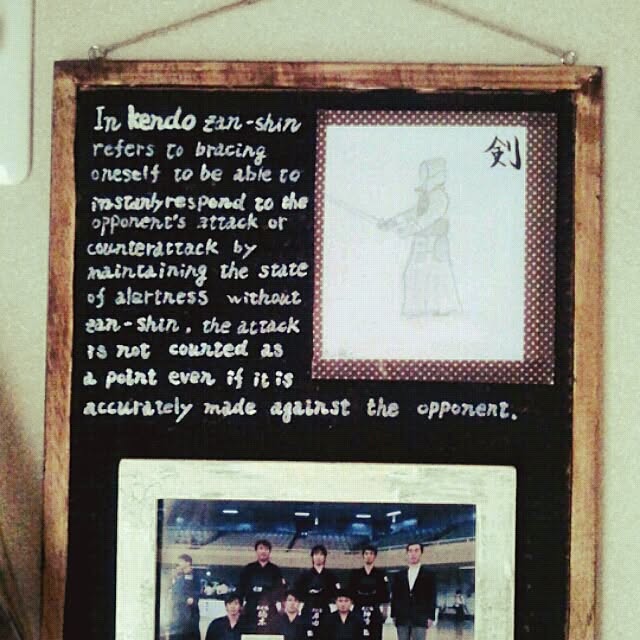 In kendo zan-shin
refers to bracing
oneself to be able to
instanly respond to the
opponent's attack or
counterattack by
maintaining the state
of alertness without
zan-shin, the attack
is not counted as
a point even if it is
accurately made against the opponent.
剣